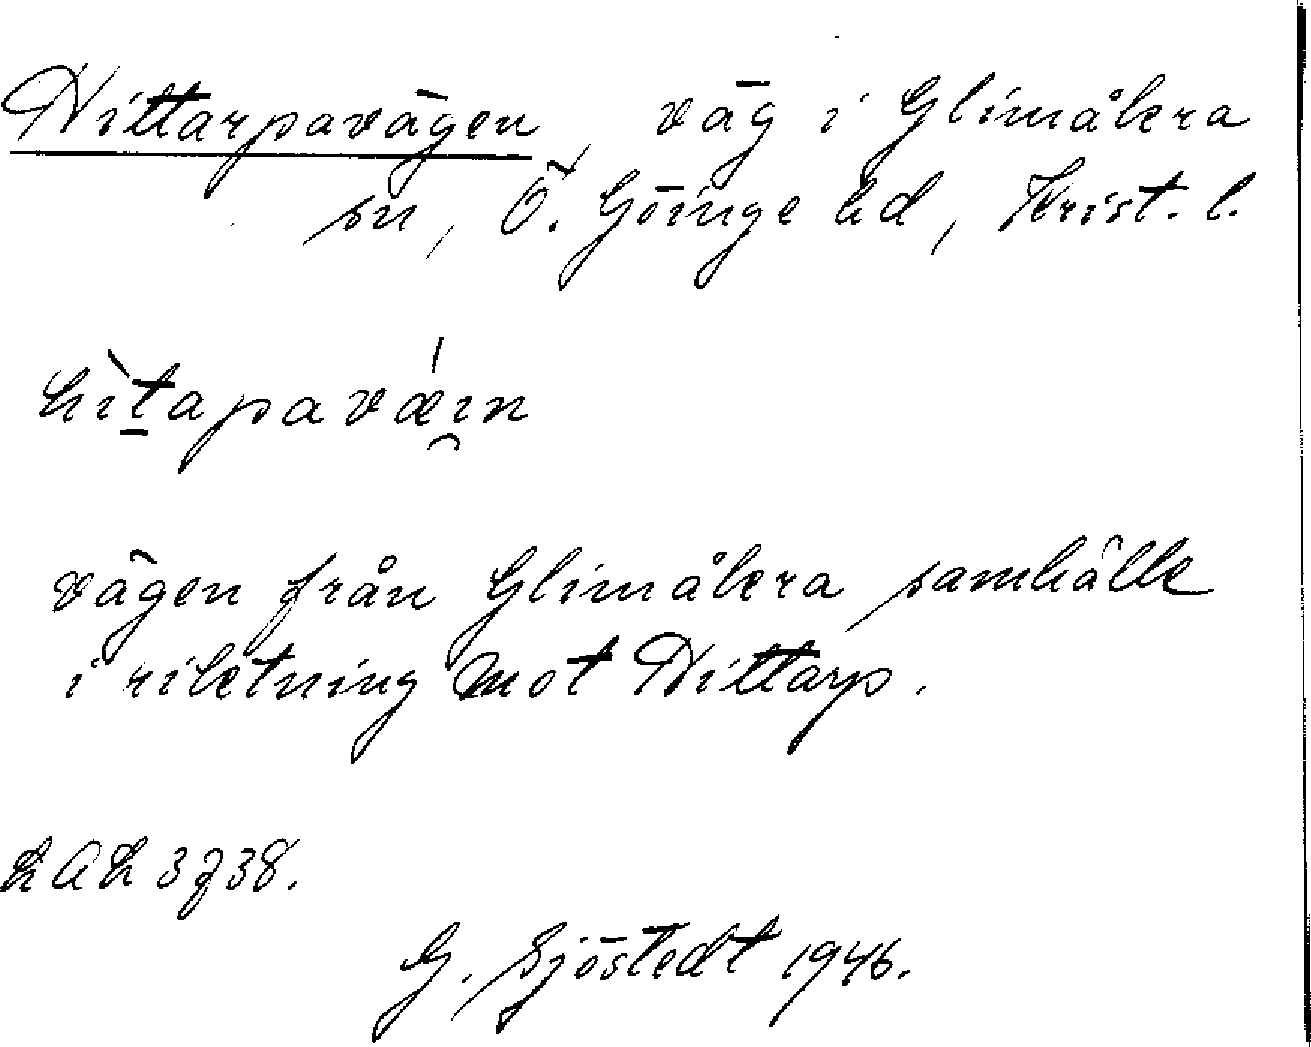 Hittarpavägen, väg i Glimåkra
sn, Ö. Göinge hd, Krist. l.
hìtapavǽi̯n
vägen från Glimåkra samhälle
i riktning mot Hittarp.
LAL 3738.
G. Sjöstedt 1946.